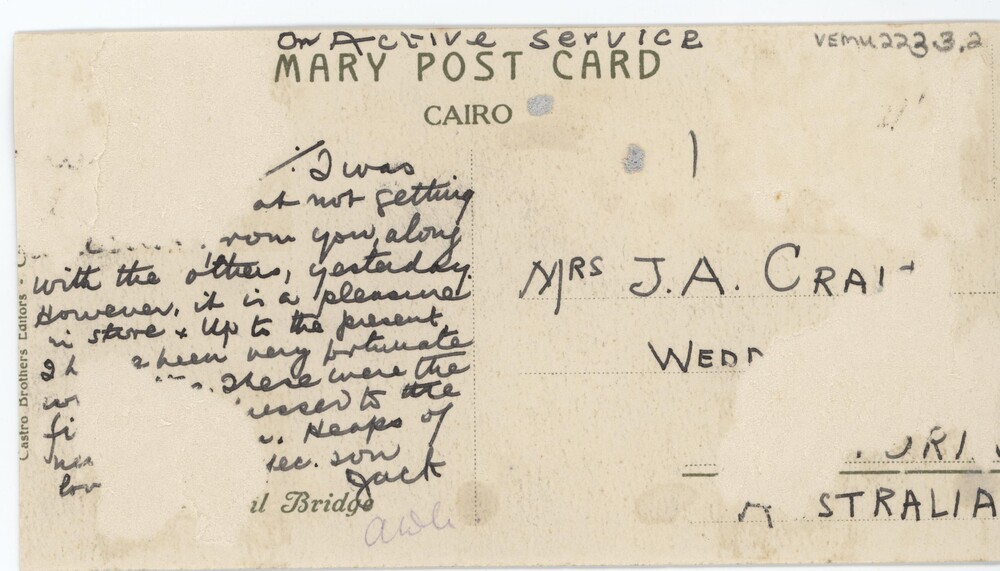 On Active Service
VEMU223.3.2
MARY POST CARD
CAIRO
I was
at not getting
rom you, along
with the others, yesterday.
However, it is a pleasure
in store & Up to the present
I h been very fortunate
There were the
ussed to the
fi Heaps of
lov son
Jack
il Bridge
Castro Brothers Editors
MRS J.A. CRAI
WEDD
URI
STRALIA